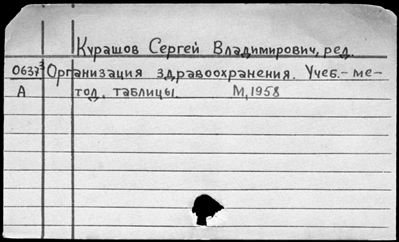 Курашов Сергей Владимирович, ред.
0637³ Организация здравоохранения. Учеб.-ме-
А тод. таблицы. М, 1958